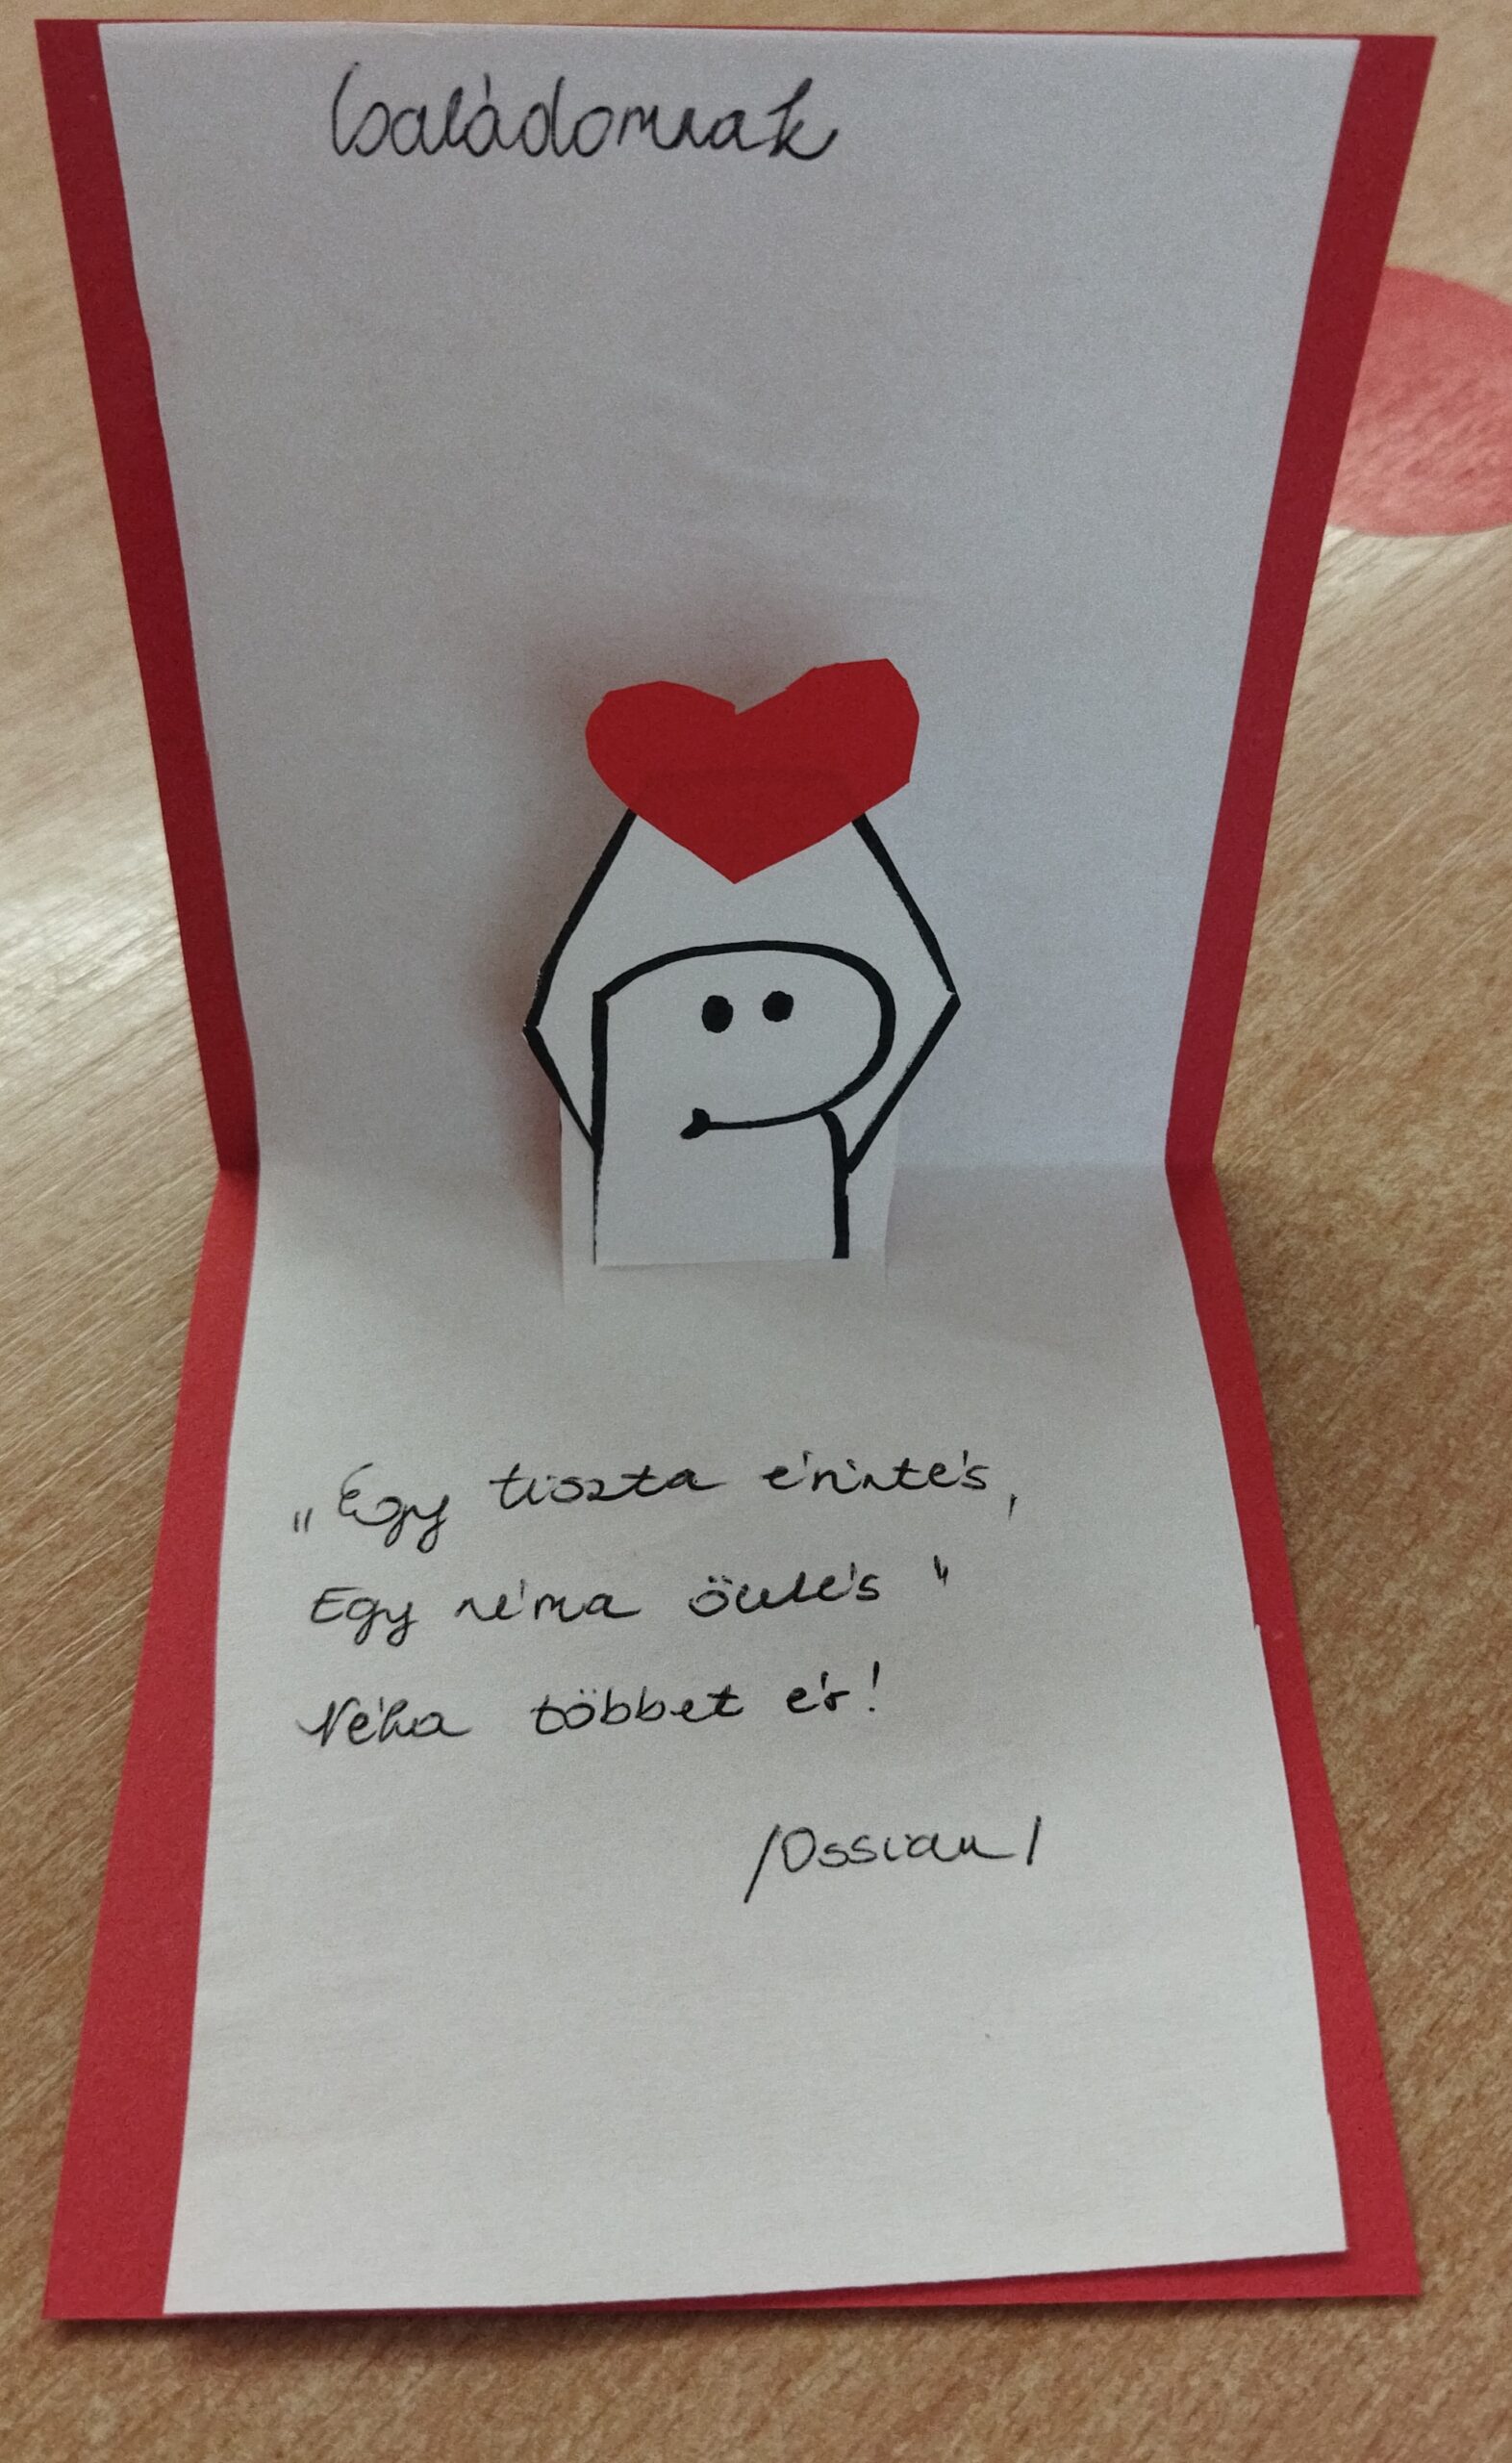 Családomnak
„Egy tiszta érintés,
Egy néma ölelés"
Néha többet ér!
/Ossian/